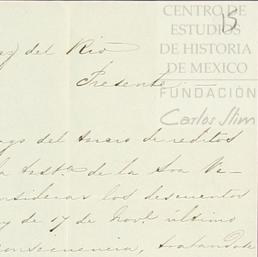 CENTRO DE
ESTUDIOS
DE HISTORIA
DE MEXICO
FUNDACIÓN
Carlos Slim
15
del Rio
Presente
del de reditos
la Testa. de la Sra Ve-
consideras los descuentos
y de 17 de Novbe. último
consecuencia, tratandose